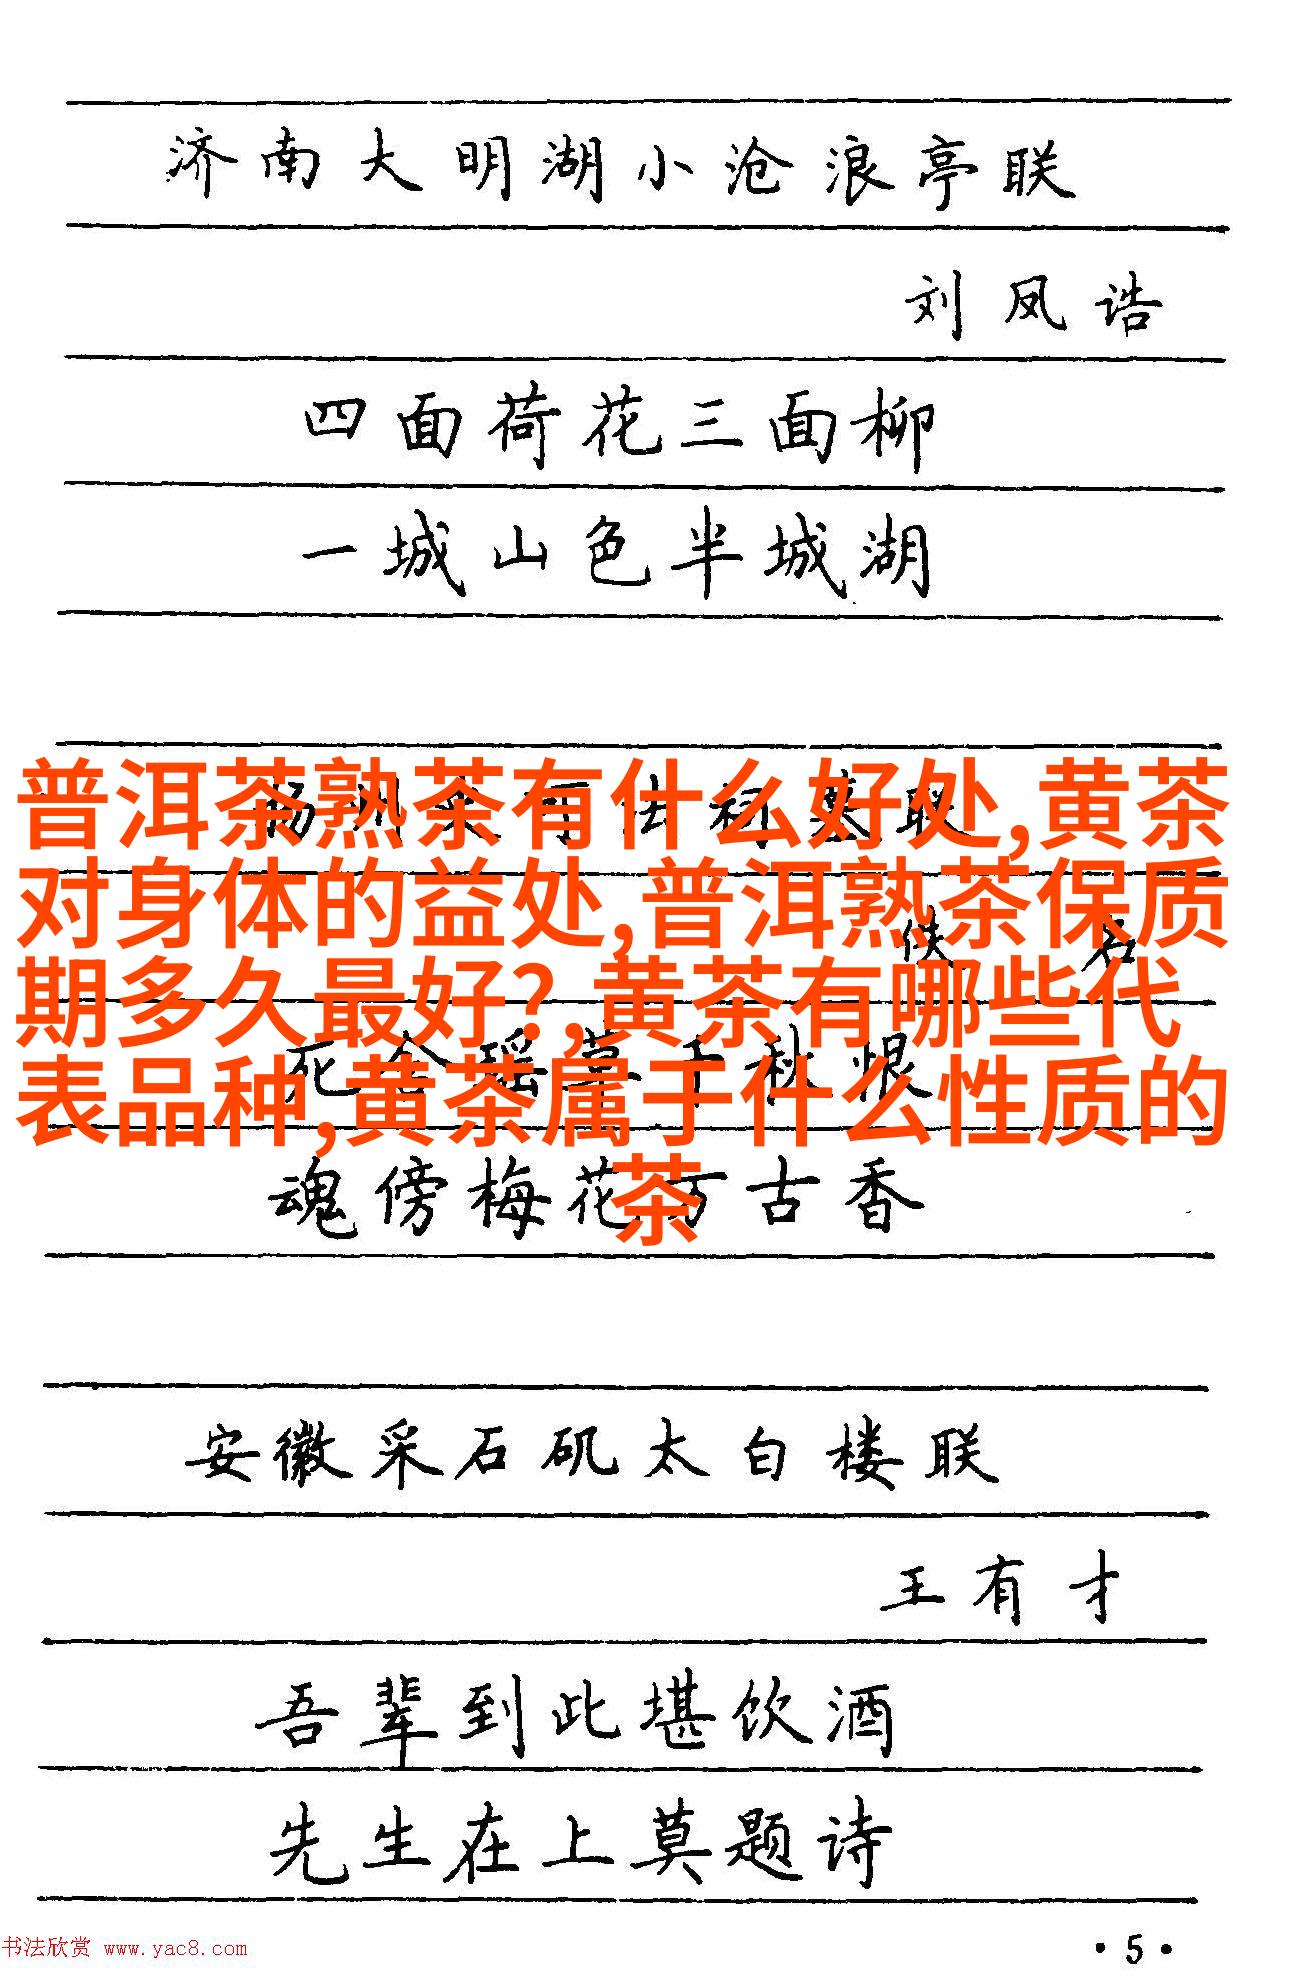 济南大明湖小沧浪亭联
刘凤诰
四面荷花三面柳
一城山色半城湖
普洱茶熟茶有什么好处,黄茶
对身体的益处,普洱熟茶保质
期多久最好?,黄茶有哪些代
表品种,黄茶属于什么性质的
茶
扬州史可法祠墓联
佚 名
死全瑶草千秋恨
魂傍梅花万古香
安徽采石矶太白楼联
王有才
吾辈到此堪饮酒
先生在上莫题诗
书法欣赏 www.yac8.com
·5·